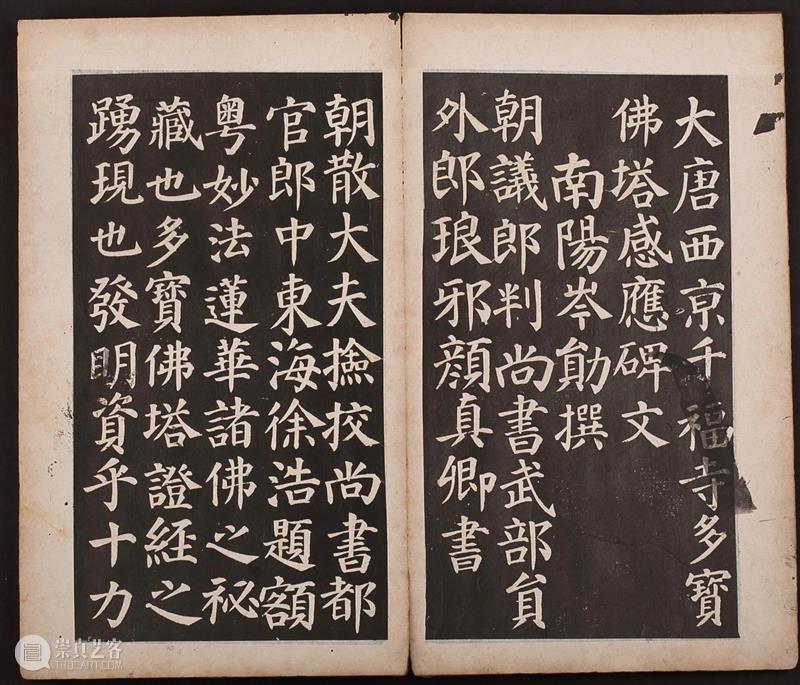 大唐西京千福寺多寶
佛塔感應碑文
南陽岑勛撰
朝議郎判尚書武部員
外郎琅邪顏真卿書
朝散大夫撿挍尚書都
官郎中東海徐浩題額
粵妙法蓮華諸佛之祕
藏也多寶佛塔證經之
踴現也發明資乎十力
崇真艺客
TRUEART.COM